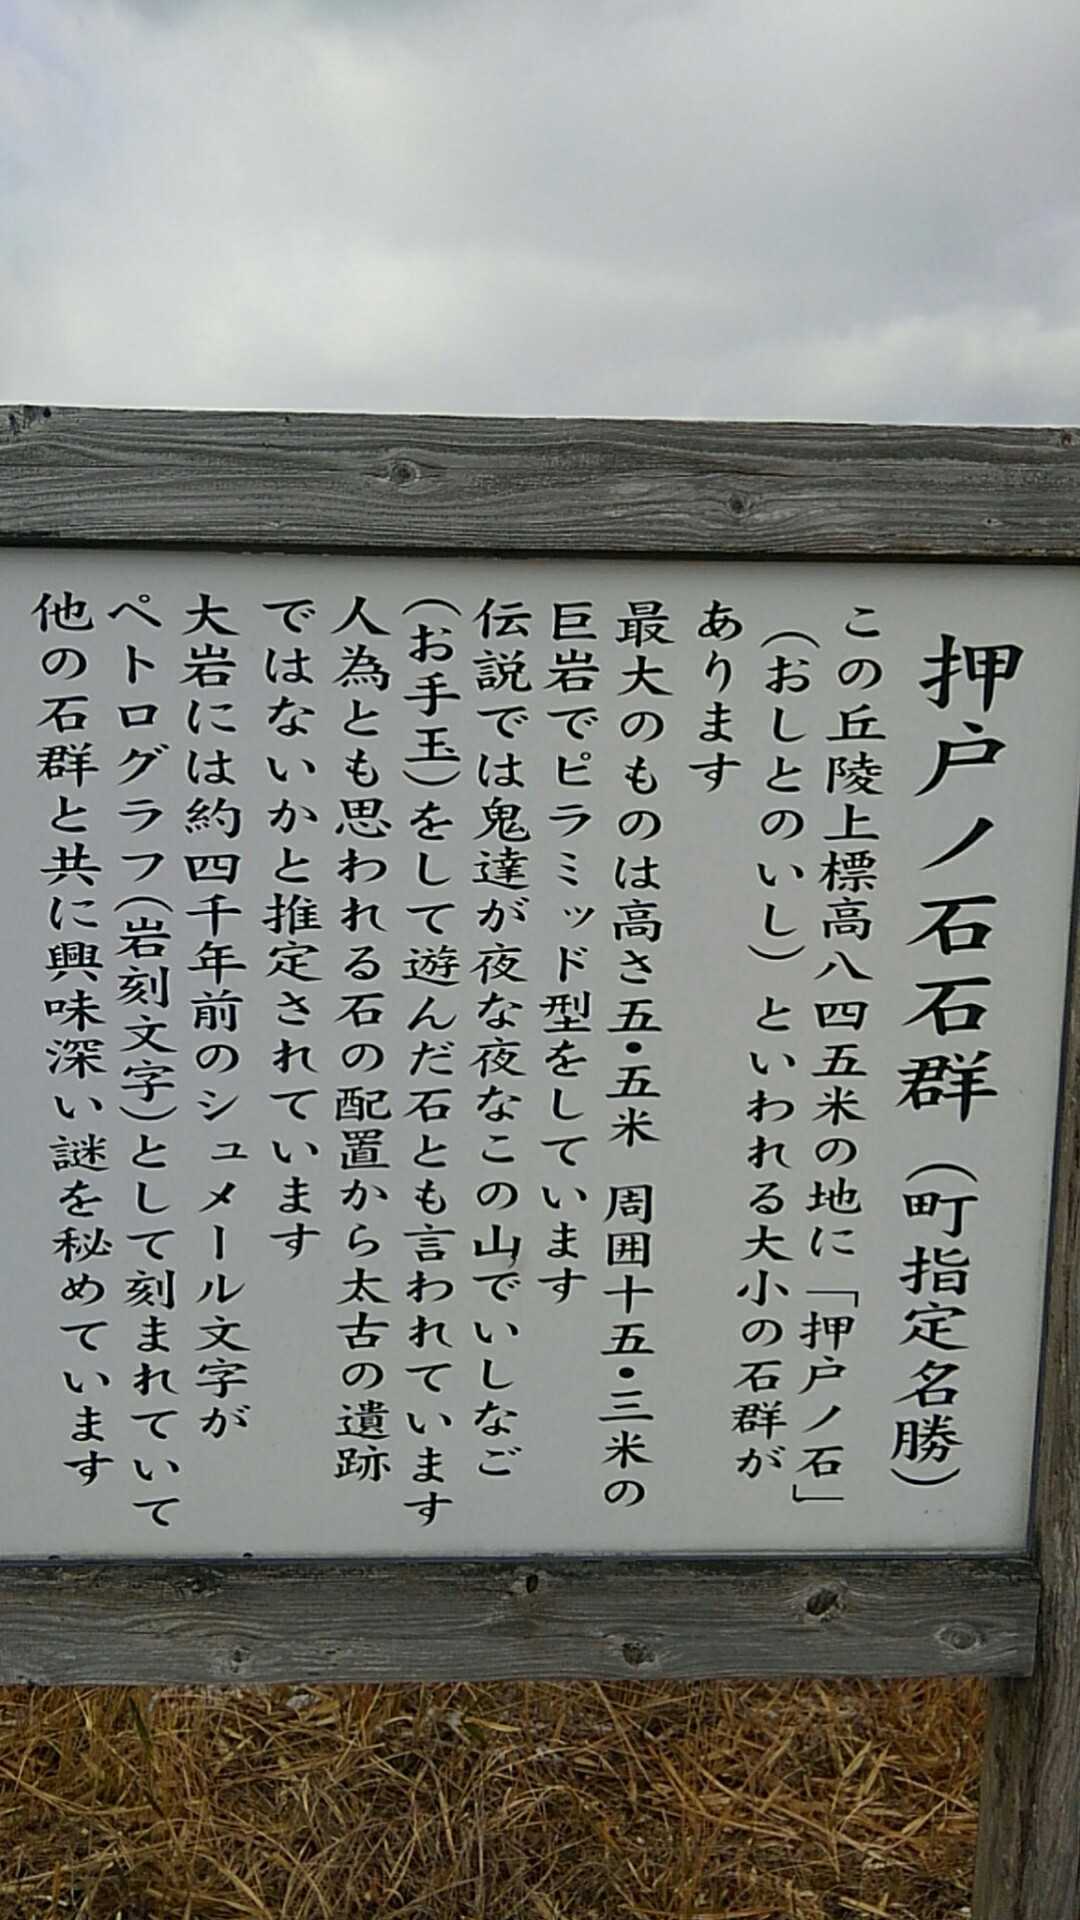 押戸ノ石石群（町指定名勝）
この丘陵上標高八四五米の地に「押戸ノ石」
（おしとのいし）といわれる大小の石群が
あります
最大のものは高さ五・五米 周囲十五・三米の
巨岩でピラミッド型をしています
伝説では鬼達が夜な夜なこの山でいしなご
（お手玉）をして遊んだ石とも言われています
人為とも思われる石の配置から太古の遺跡
ではないかと推定されています
大岩には約四千年前のシュメール文字が
ペトログラフ（岩刻文字）として刻まれていて
他の石群と共に興味深い謎を秘めています